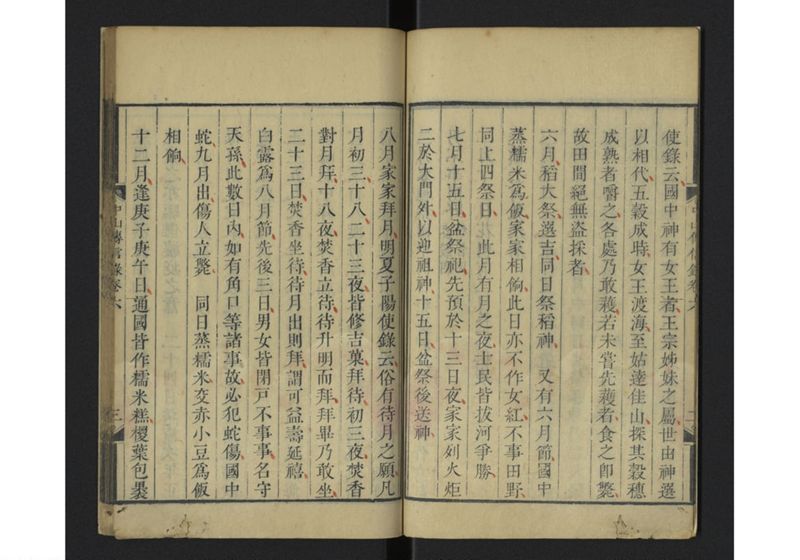 使錄云國中神有女王者王宗姊妹之屬世由神選
以相代五穀成時女王渡海至姑達佳山探其穀穗
成熟者嚼之各處乃敢穫若未嘗先穫者食之卽斃
故田間絕無盜採者
六月稻大祭選吉同日祭稻神 又有六月節國中
蒸糯米爲飯家家相餉此日亦不作女紅不事田野
同上四祭日 此月有月之夜士民皆拔河爭勝
七月十五日盆祭祀先預於十三日夜家家列火炬
二於大門外以迎祖神十五日盆祭後送神
八月家家拜月明夏子陽使錄云俗有待月之願凡
月初三十八二十三夜皆修吉菓拜待初三夜焚香
對月拜十八夜焚香立待待升明而拜拜畢乃敢坐
二十三日焚香坐待待月出則拜謂可益壽延禧
白露爲八月節先後三日男女皆閉戸不事事名守
天孫此數日内如有角口等諸事故必犯蛇傷國中
蛇九月出傷人立斃 同日蒸糯米交赤小豆爲飯
相餉
十二月逢庚子庚午日通國皆作糯米糕椶葉包褁
中山傳信錄卷六
三